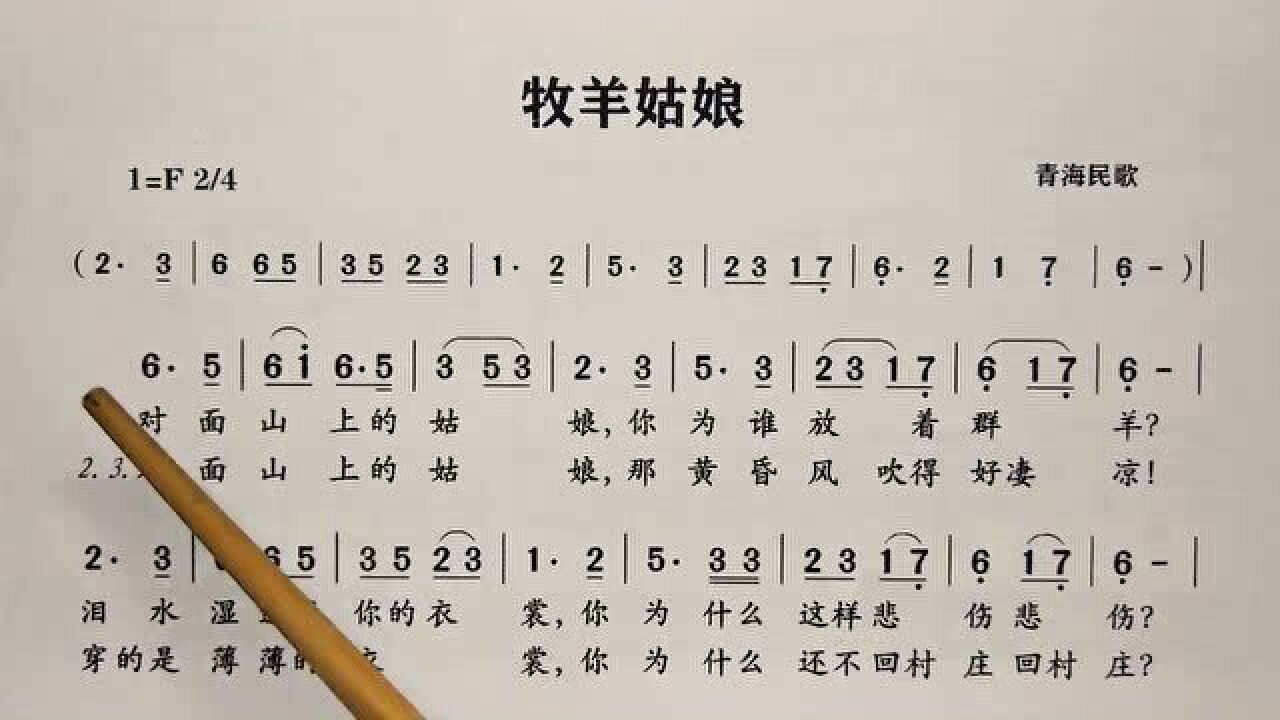 牧羊姑娘
1=F 2/4 青海民歌
(2· 3 | 6 6 5 | 3 5 2 3 | 1· 2 | 5· 3 | 2 3 1 7 | 6· 2 | 1 7 | 6 - )|
6· 5 | 6 1 6·5 | 3 5 3 | 2· 3 | 5· 3 | 2 3 1 7 | 6 1 7 | 6 - |
对 面 山 上的 姑 娘,你 为 谁 放 着 群 羊?
2.3. 面 山 上的 姑 娘,那 黄 昏 风 吹得 好凄 凉!
2· 3 | 6 5 | 3 5 2 3 | 1· 2 | 5· 3 3 | 2 3 1 7 | 6 1 7 | 6 - |
泪 水 湿 你的衣 裳,你 为 什么 这样悲 伤悲 伤?
穿的是 薄薄的 裳,你 为 什么 还不回村 庄回村 庄?